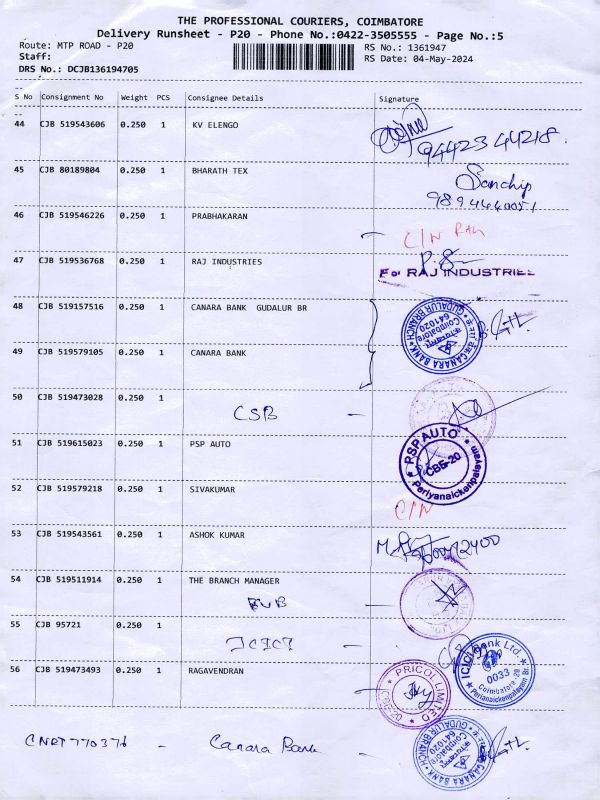 THE PROFESSIONAL COURIERS, COIMBATORE
Delivery Runsheet - P20 - Phone No.:0422-3505555 - Page No.:5
Route: MTP ROAD - P20 RS No.: 1361947
Staff: RS Date: 04-May-2024
DRS No.: DCJB136194705
S No Consignment No Weight PCS Consignee Details Signature
44 CJB 519543606 0.250 1 KV ELENGO
94423 44218.
45 CJB 80189804 0.250 1 BHARATH TEX
46 CJB 519546226 0.250 1 PRABHAKARAN
C/N
47 CJB 519536768 0.250 1 RAJ INDUSTRIES
For RAJ INDUSTRIES
48 CJB 519157516 0.250 1 CANARA BANK GUDALUR BR
CANARA BANK GUDALUR BRANCH Coimbatore 641020
49 CJB 519579105 0.250 1 CANARA BANK
50 CJB 519473028 0.250 1
CSB -
51 CJB 519615023 0.250 1 PSP AUTO
PSP AUTO CBE-20 Periyanaickenpalayam
52 CJB 519579218 0.250 1 SIVAKUMAR
C/N
53 CJB 519543561 0.250 1 ASHOK KUMAR
54 CJB 519511914 0.250 1 THE BRANCH MANAGER
KVB -
55 CJB 95721 0.250 1
ICICI -
ICICI Bank Ltd. 0033 Coimbatore-20 Perianaickenpalayam Br.
56 CJB 519473493 0.250 1 RAGAVENDRAN
PRICOL LIMITED
CNRT770376 - Canara Bank
CANARA BANK GUDALUR BRANCH Coimbatore 641020